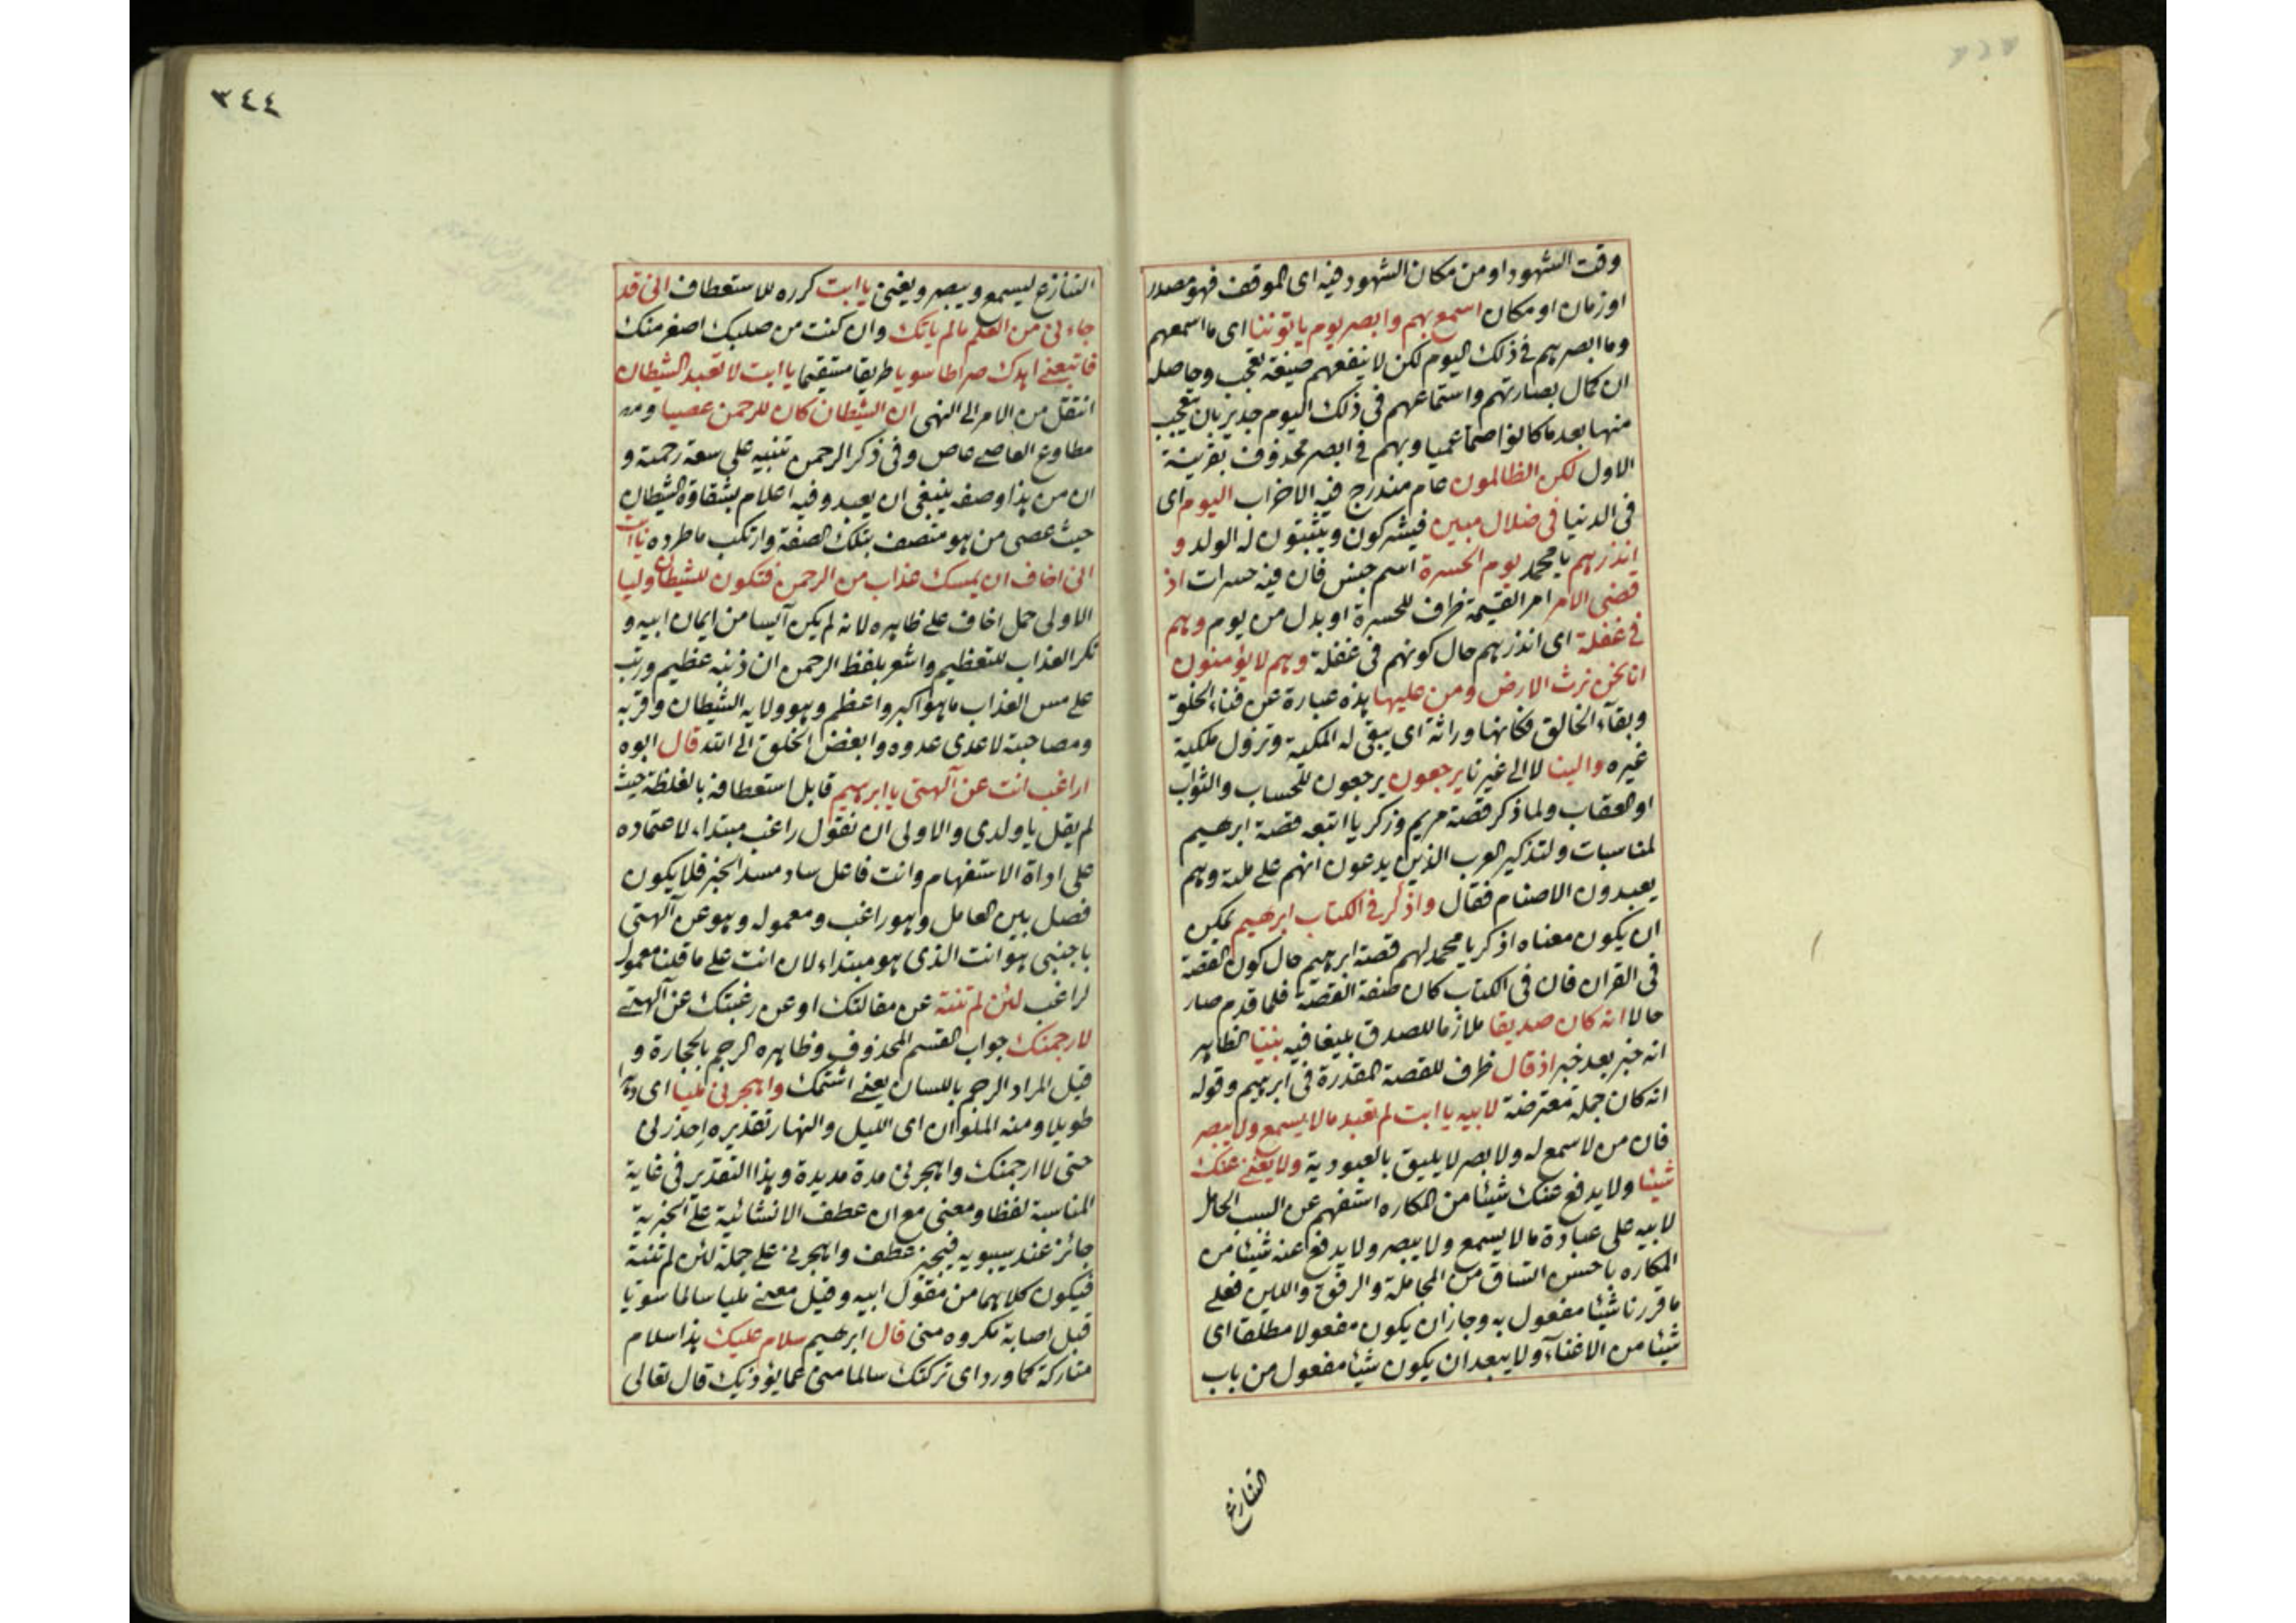 وقت الشهود او من مكان الشهود فيه اى الموقف فهو مصدر
او زمان او مكان اسمع بهم وابصر يوم ياتوننا اى ما اسمعهم
وما ابصرهم فى ذلك اليوم لكن لا ينفعهم صيغة تعجب وحاصله
ان كمال بصارتهم واستماعهم فى ذلك اليوم جدير بان يتعجب
منها بعد ما كانوا صما عميا وبهم فى ابصر محذوف بقرينة
الاول لكن الظالمون عام مندرج فيه الاحزاب اليوم اى
فى الدنيا فى ضلال مبين فيشركون ويثبتون له الولد و
انذرهم يا محمد يوم الحسرة اسم جنس فان فيه حسرات اذ
قضى الامر امر القيمة ظرف للحسرة او بدل من يوم وهم
فى غفلة اى انذرهم حال كونهم فى غفلة وهم لا يؤمنون
انا نحن نرث الارض ومن عليها هذه عبارة عن فناء الخلق
وبقآء الخالق فكانها وراثة اى يبقى له الملكية وتزول ملكية
غيره والينا لا الى غيرنا يرجعون يرجعون للحساب والثواب
او العقاب ولما ذكر قصة مريم وزكريا اتبعه قصة ابرهيم
لمناسبات ولتذكير العرب الذين يدعون انهم على ملة وهم
يعبدون الاصنام فقال واذكر فى الكتاب ابرهيم يمكن
ان يكون معناه اذكر يا محمد لهم قصة ابرهيم حال كون القصة
فى القران فان فى الكتاب كان صفة القصة فلما قدم صار
حالا انه كان صديقا ملازما للصدق بليغا فيه نبيا الظاهر
انه خبر بعد خبر اذ قال ظرف للقصة المقدرة فى ابرهيم وقوله
انه كان جملة معترضة لابيه يا ابت لم تعبد ما لا يسمع ولا يبصر
فان من لا سمع له ولا بصر لا يليق بالعبودية ولا يغنى عنك
شيئا ولا يدفع عنك شيئا من المكاره استفهم عن السبب الحامل
لابيه على عبادة ما لا يسمع ولا يبصر ولا يدفع عنه شيئا من
المكاره باحسن اتساق من المجاملة والرفق واللين فعلى
ما قررنا شيئا مفعول به وجاز ان يكون مفعولا مطلقا اى
شيئا من الاغنآء ولا يبعد ان يكون شيئا مفعول من باب
التنازع
٣٤٤
التنازع ليسمع ويبصر ويغنى يا ابت كرره للاستعطاف انى قد
جاءنى من العلم ما لم ياتك وان كنت من صلبك اصغر منك
فاتبعنى اهدك صراطا سويا طريقا مستقيما يا ابت لا تعبد الشيطان
انتقل من الامر الى النهى ان الشيطان كان للرحمن عصيا ومن
مطاوع العاصى عاص وفى ذكر الرحمن تنبيه على سعة رحمته و
ان من هذا وصفه ينبغى ان يعبد وفيه اعلام بشقاوة الشيطان
حيث عصى من هو متصف بتلك الصفة وارتكب ما طرده يا ابت
انى اخاف ان يمسك عذاب من الرحمن فتكون للشيطان وليا
الاولى حمل اخاف على ظاهره لانه لم يكن آيسا من ايمان ابيه و
نكر العذاب للتعظيم واشعر بلفظ الرحمن ان ذنبه عظيم ورتب
على مس العذاب ما هو اكبر واعظم وهو ولاية الشيطان وقربه
ومصاحبة لاعدى عدوه وابغض الخلق الى الله قال ابوه
اراغب انت عن آلهتى يا ابرهيم قابل استعطافه بالغلظة حيث
لم يقل يا ولدى والاولى ان نقول راغب مبتداء لاعتماده
على اداة الاستفهام وانت فاعل ساد مسد الخبر فلا يكون
فصل بين العامل وهو راغب ومعموله وهو عن آلهتى
باجنبى هو انت الذى هو مبتداء لان انت على ما قلنا معمول
لراغب لئن لم تنته عن مقالتك او عن رغبتك عن آلهتى
لارجمنك جواب القسم المحذوف وظاهره الرجم بالحجارة و
قيل المراد الرجم باللسان يعنى اشتمك واهجرنى مليا اى دهرا
طويلا ومنه الملوان اى الليل والنهار تقديره احذرنى
حتى لا ارجمنك واهجرنى مدة مديدة وهذا التقدير فى غاية
المناسبة لفظا ومعنى مع ان عطف الانشائية على الخبرية
جائز عند سيبويه فيجيز عطف واهجرنى على جملة لئن لم تنته
فيكون كلاهما من مقول ابيه وقيل معنى مليا سالما سويا
قبل اصابة مكروه منى قال ابرهيم سلام عليك هذا سلام
متاركة كما ورد اى تركتك سالما منى عما يؤذيك قال تعالى